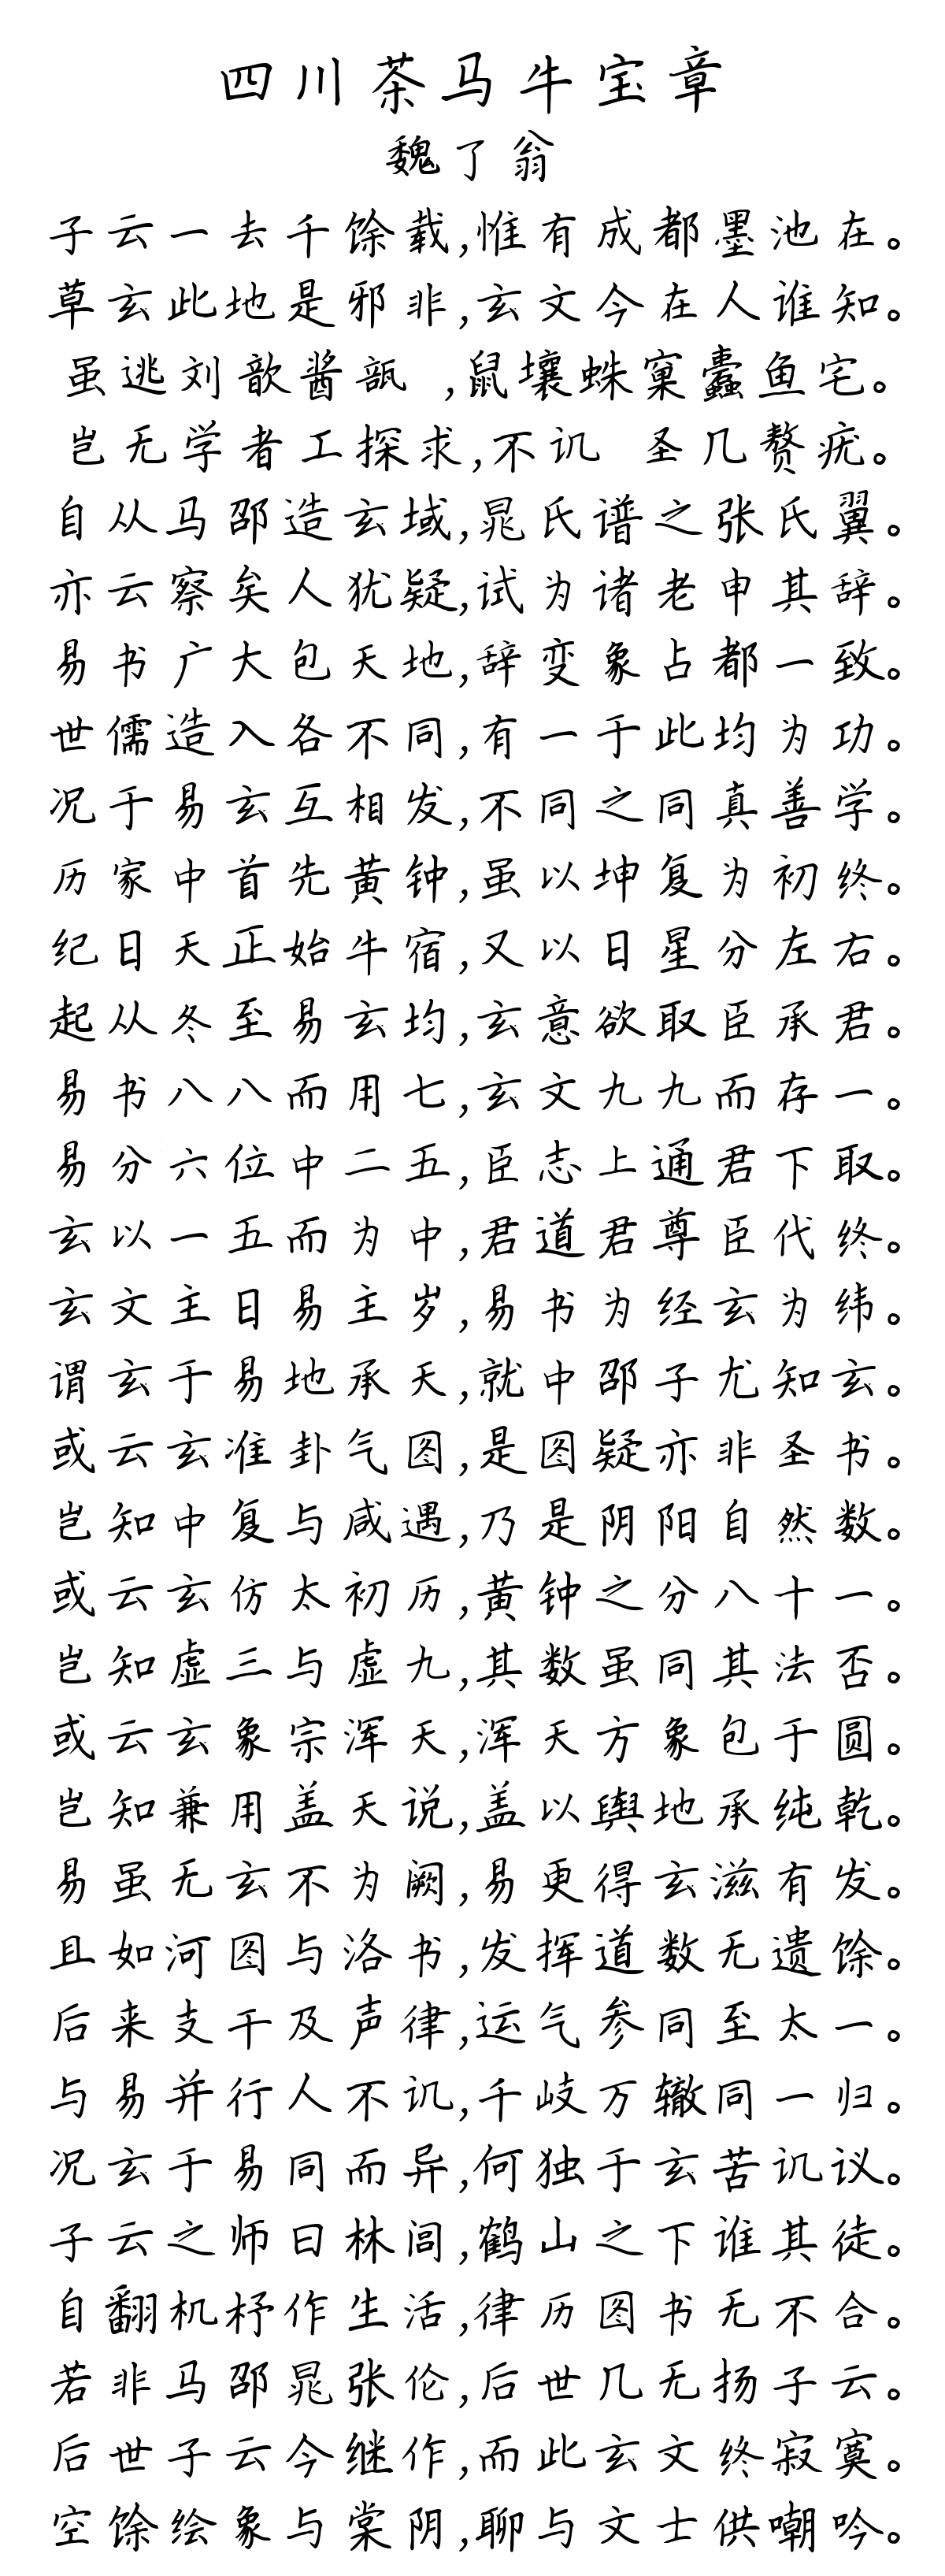 四川茶马牛宝章
魏了翁
子云一去千馀载,惟有成都墨池在。
草玄此地是邪非,玄文今在人谁知。
虽逃刘歆酱瓿,鼠壤蛛窠蠹鱼宅。
岂无学者工探求,不讥 圣几赘疣。
自从马邵造玄域,晁氏谱之张氏翼。
亦云察矣人犹疑,试为诸老申其辞。
易书广大包天地,辞变象占都一致。
世儒造入各不同,有一于此均为功。
况于易玄互相发,不同之同真善学。
历家中首先黄钟,虽以坤复为初终。
纪日天正始牛宿,又以日星分左右。
起从冬至易玄均,玄意欲取臣承君。
易书八八而用七,玄文九九而存一。
易分六位中二五,臣志上通君下取。
玄以一五而为中,君道君尊臣代终。
玄文主日易主岁,易书为经玄为纬。
谓玄于易地承天,就中邵子尤知玄。
或云玄准卦气图,是图疑亦非圣书。
岂知中复与咸遇,乃是阴阳自然数。
或云玄仿太初历,黄钟之分八十一。
岂知虚三与虚九,其数虽同其法否。
或云玄象宗浑天,浑天方象包于圆。
岂知兼用盖天说,盖以舆地承纯乾。
易虽无玄不为阙,易更得玄滋有发。
且如河图与洛书,发挥道数无遗馀。
后来支干及声律,运气参同至太一。
与易并行人不讥,千岐万辙同一归。
况玄于易同而异,何独于玄苦讥议。
子云之师曰林闾,鹤山之下谁其徒。
自翻机杼作生活,律历图书无不合。
若非马邵晁张伦,后世几无扬子云。
后世子云今继作,而此玄文终寂寞。
空馀绘象与棠阴,聊与文士供嘲吟。